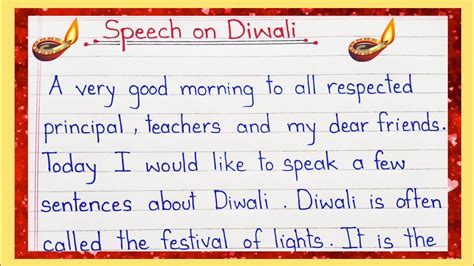 Speech on Diwali
A very good morning to all respected
principal, teachers and my dear friends.
Today I would like to speak a few
sentences about Diwali. Diwali is often
called the festival of lights. It is the